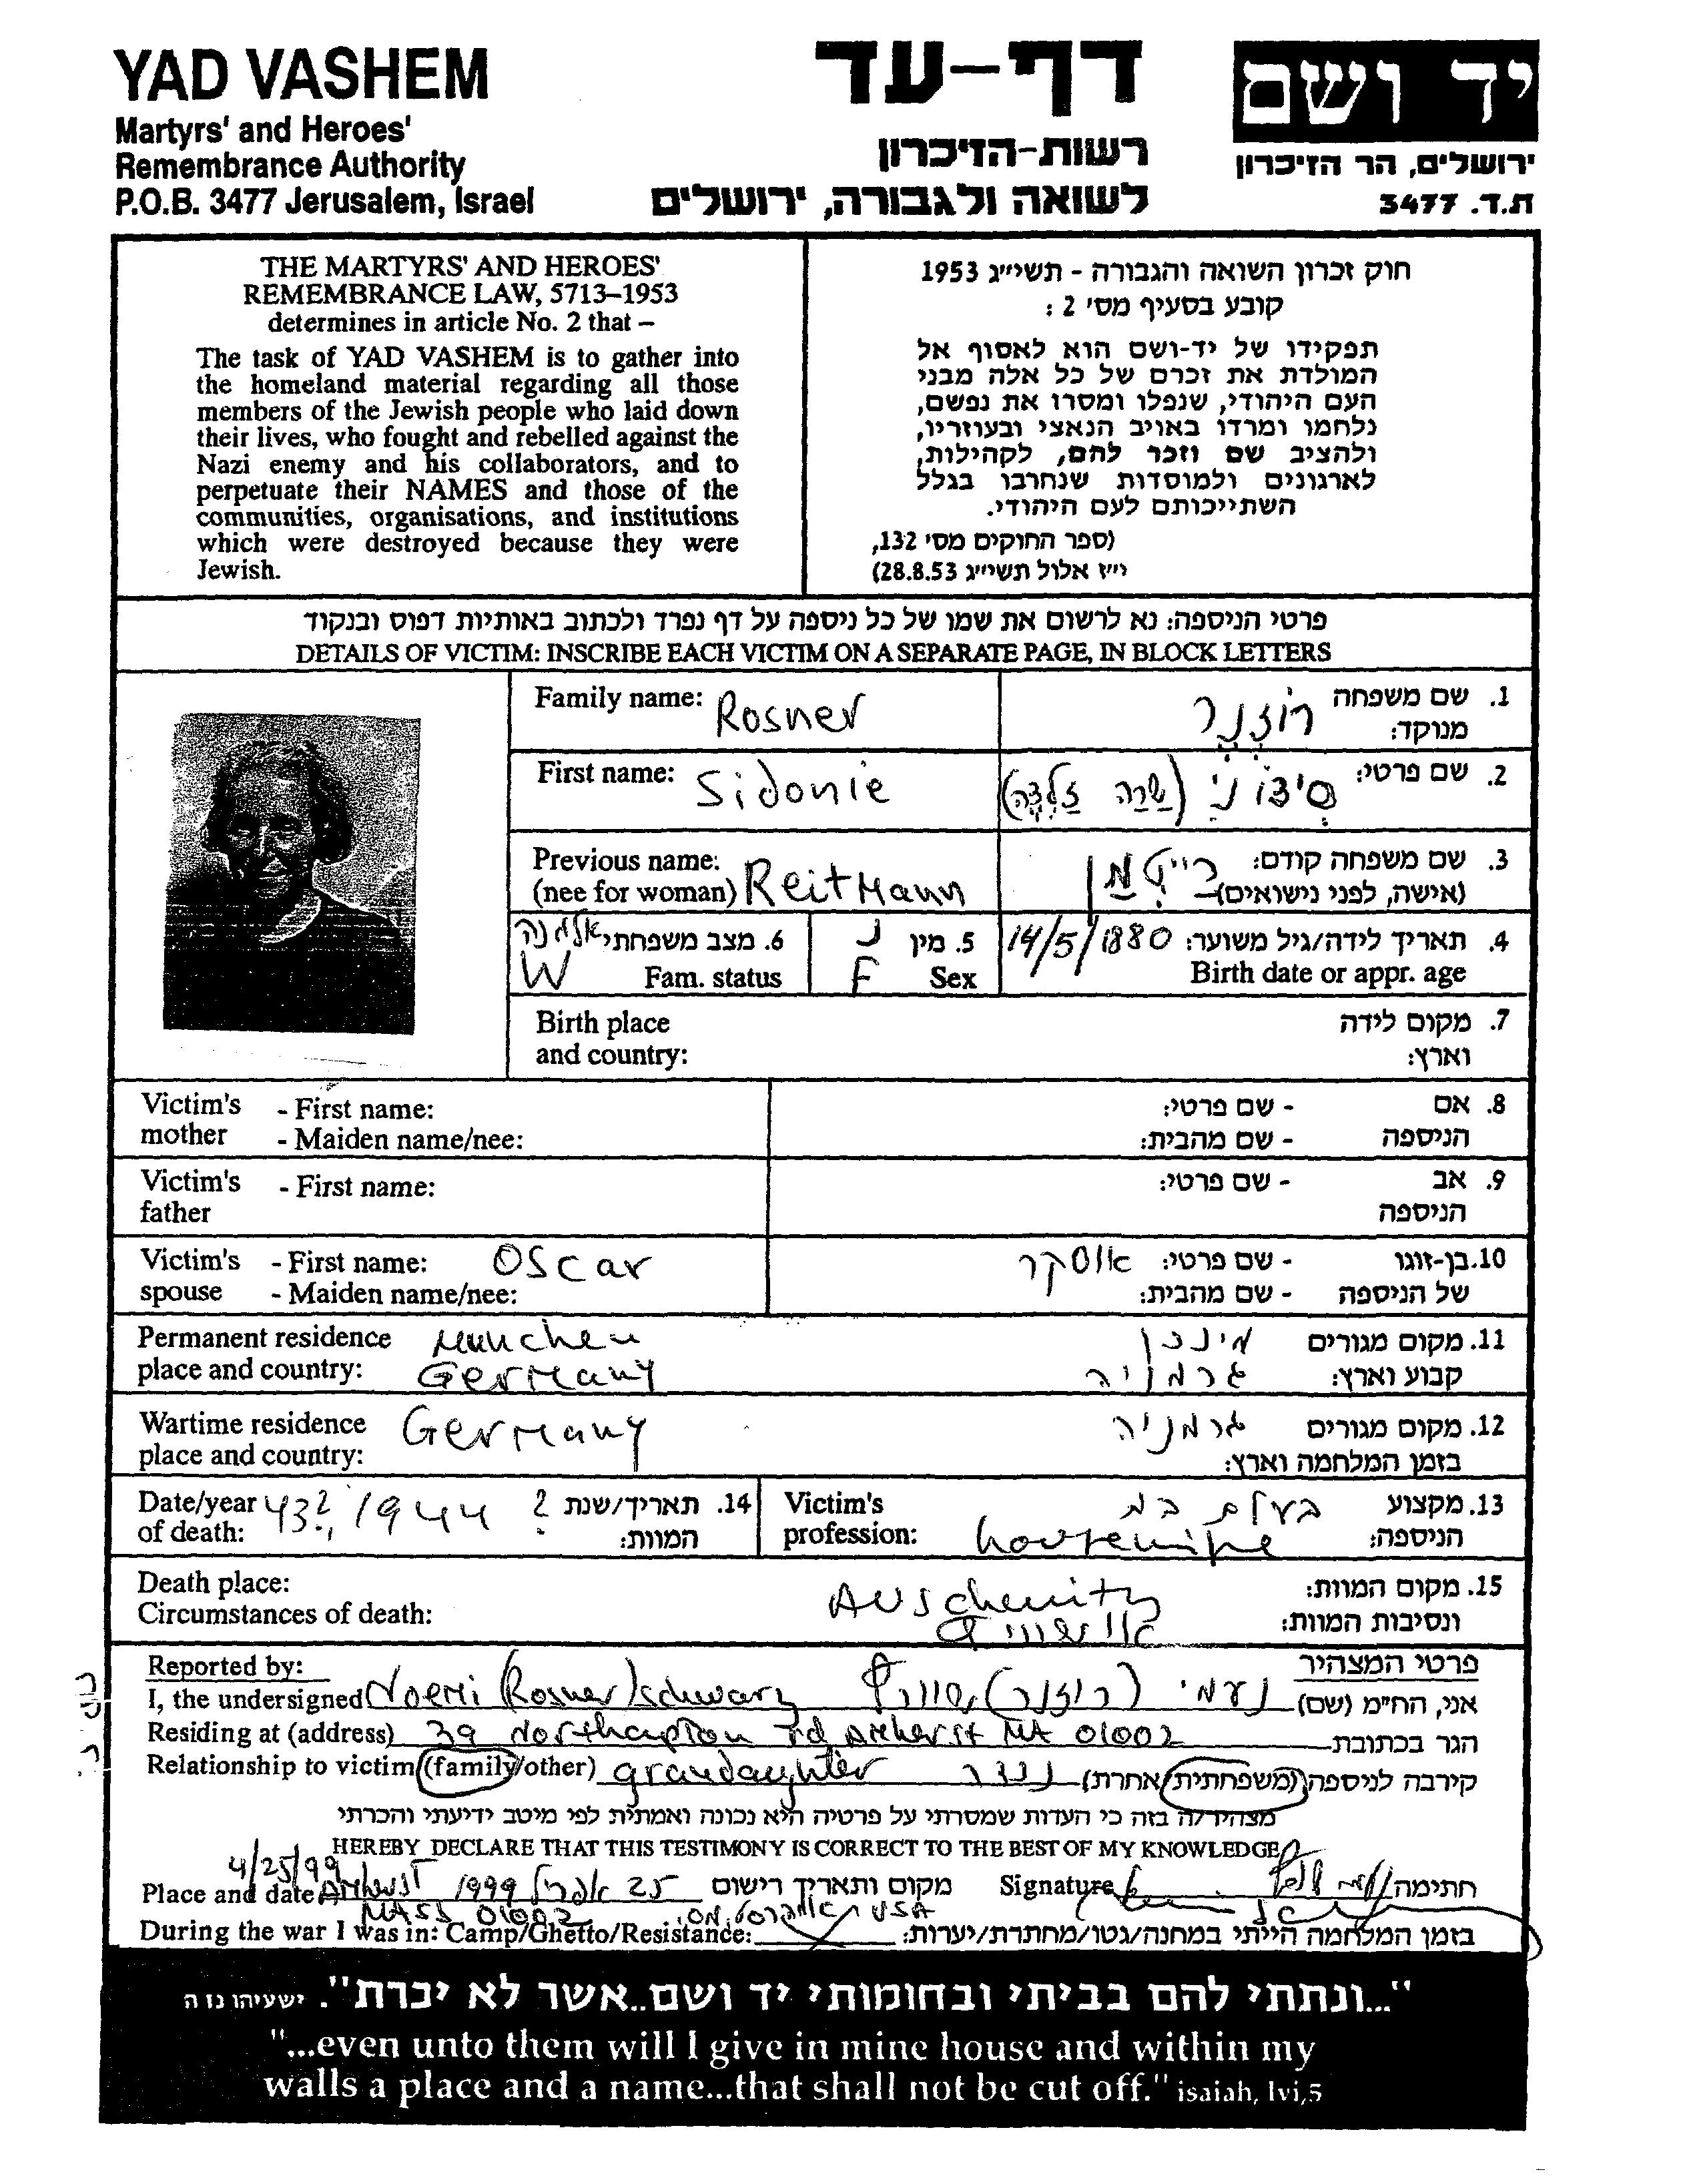 YAD VASHEM
Martyrs' and Heroes'
Remembrance Authority
P.O.B. 3477 Jerusalem, Israel
דף-עד
רשות-הזיכרון
לשואה ולגבורה, ירושלים
יד ושם
ירושלים, הר הזיכרון
ת.ד. 3477
THE MARTYRS' AND HEROES'
REMEMBRANCE LAW, 5713–1953
determines in article No. 2 that –
The task of YAD VASHEM is to gather into
the homeland material regarding all those
members of the Jewish people who laid down
their lives, who fought and rebelled against the
Nazi enemy and his collaborators, and to
perpetuate their NAMES and those of the
communities, organisations, and institutions
which were destroyed because they were
Jewish.
חוק זכרון השואה והגבורה - תשי״ג 1953
קובע בסעיף מס' 2 :
תפקידו של יד-ושם הוא לאסוף אל
המולדת את זכרם של כל אלה מבני
העם היהודי, שנפלו ומסרו את נפשם,
נלחמו ומרדו באויב הנאצי ובעוזריו,
ולהציב שם וזכר להם, לקהילות,
לארגונים ולמוסדות שנחרבו בגלל
השתייכותם לעם היהודי.
(ספר החוקים מס' 132,
י״ז אלול תשי״ג 28.8.53)
פרטי הניספה: נא לרשום את שמו של כל ניספה על דף נפרד ולכתוב באותיות דפוס ובנקוד
DETAILS OF VICTIM: INSCRIBE EACH VICTIM ON A SEPARATE PAGE, IN BLOCK LETTERS
Family name: Rosner
1. שם משפחה רוֹזְנֶר
מנוקד:
First name: Sidonie
2. שם פרטי: סִידוֹנִי (שרה זלדה)
Previous name:
(nee for woman) Reitmann
3. שם משפחה קודם: רייטמן
(אישה, לפני נישואים)
6. מצב משפחתי אלמנה
W Fam. status
5. מין נ
F Sex
4. תאריך לידה/גיל משוער: 14/5/1880
Birth date or appr. age
Birth place
and country:
7. מקום לידה
וארץ:
Victim's - First name:
mother - Maiden name/nee:
8. אם - שם פרטי:
הניספה - שם מהבית:
Victim's - First name:
father
9. אב - שם פרטי:
הניספה
Victim's - First name: Oscar
spouse - Maiden name/nee:
10. בן-זוגו - שם פרטי: אוסקר
של הניספה - שם מהבית:
Permanent residence Munchen
place and country: Germany
11. מקום מגורים מינכן
קבוע וארץ: גרמניה
Wartime residence Germany
place and country:
12. מקום מגורים גרמניה
בזמן המלחמה וארץ:
Date/year 43?, 1944 ?
of death:
14. תאריך/שנת
המוות:
Victim's
profession: housewife
13. מקצוע בעלת בית
הניספה:
Death place: Auschwitz
Circumstances of death:
15. מקום המוות:
ונסיבות המוות: אושוויץ
Reported by:
פרטי המצהיר
I, the undersigned Noemi (Rosner) Schwarz
אני, הח״מ (שם) נעמי (רוזנר) שוורץ
Residing at (address) 39 Northampton rd Amherst MA 01002 הגר בכתובת
Relationship to victim (family/other) grandaughter
קירבה לניספה (משפחתית/אחרת) נכדה
מצהיר/ה בזה כי העדות שמסרתי על פרטיה היא נכונה ואמתית לפי מיטב ידיעתי והכרתי
HEREBY DECLARE THAT THIS TESTIMONY IS CORRECT TO THE BEST OF MY KNOWLEDGE
4/25/99
Place and date Amherst 25 אפריל 1999 מקום ותאריך רישום
Signature חתימה
MASS 01002 USA
During the war I was in: Camp/Ghetto/Resistance: בזמן המלחמה הייתי במחנה/גטו/מחתרת/יערות:
"...ונתתי להם בביתי ובחומותי יד ושם..אשר לא יכרת". ישעיהו נו ה
"...even unto them will I give in mine house and within my
walls a place and a name...that shall not be cut off." isaiah, lvi,5